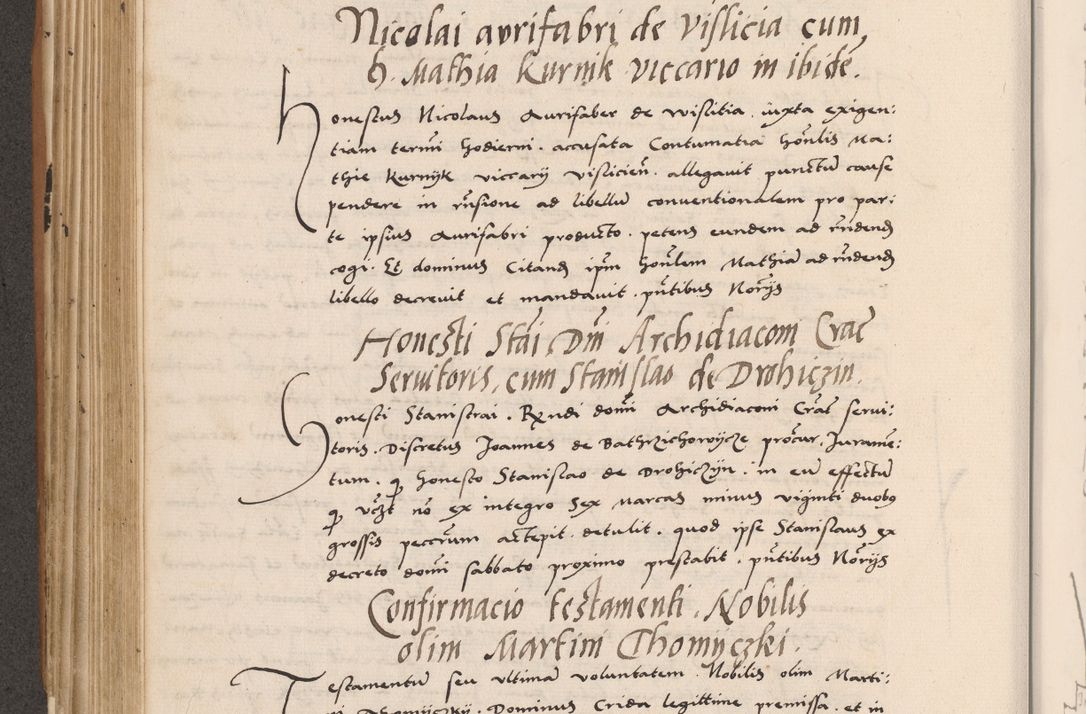 Nicolai avrifabri de Vislicia cum,
h. Mathia Kurnik viccario in ibidē.
Honestus Nicolaus Aurifaber de wislitia. iuxta exigen:
tiam termī hodierni. accusata Contumatia hōnlis Ma:
thie Kurnyk viccarij vislicieñ. allegauit punctum cause
pendere in rn̄sione ad libellū conventionalem pro par:
te ipsius Aurifabri producto. petens eundem ad rn̄dend
cogi. Et dominus Citand ipm̄ hōnlem Mathiā ad rn̄dend
libello decreuit et mandauit. pn̄tibus Norijs
Honesti Stāi Dnī Archidiaconi Crac̄
Servitoris, cum Stanislao de Drohiczin.
Honesti Stanislai. Rxndi domī Archidiaconi Crac̄ servi:
toris. Discretus Joannes de Bathrzichowycze procur. Jurame:
tum. q honesto Stanislao de Drohiczyn. in eum effectum
q nō ex integro Sex marcas minus viginti duobus
grossis peccūm accepit. detulit. quod ipse Stanislaus ex
decreto domī sabbato proximo prestabit. pn̄tibus Norijs
Confirmacio testamenti. Nobilis
olim Martini Thomiczki.
Testamentū seu vltimā voluntatem. Nobilis olim Marti:
ni Thomijczkij. Dominus Crida legittime premissa. et in